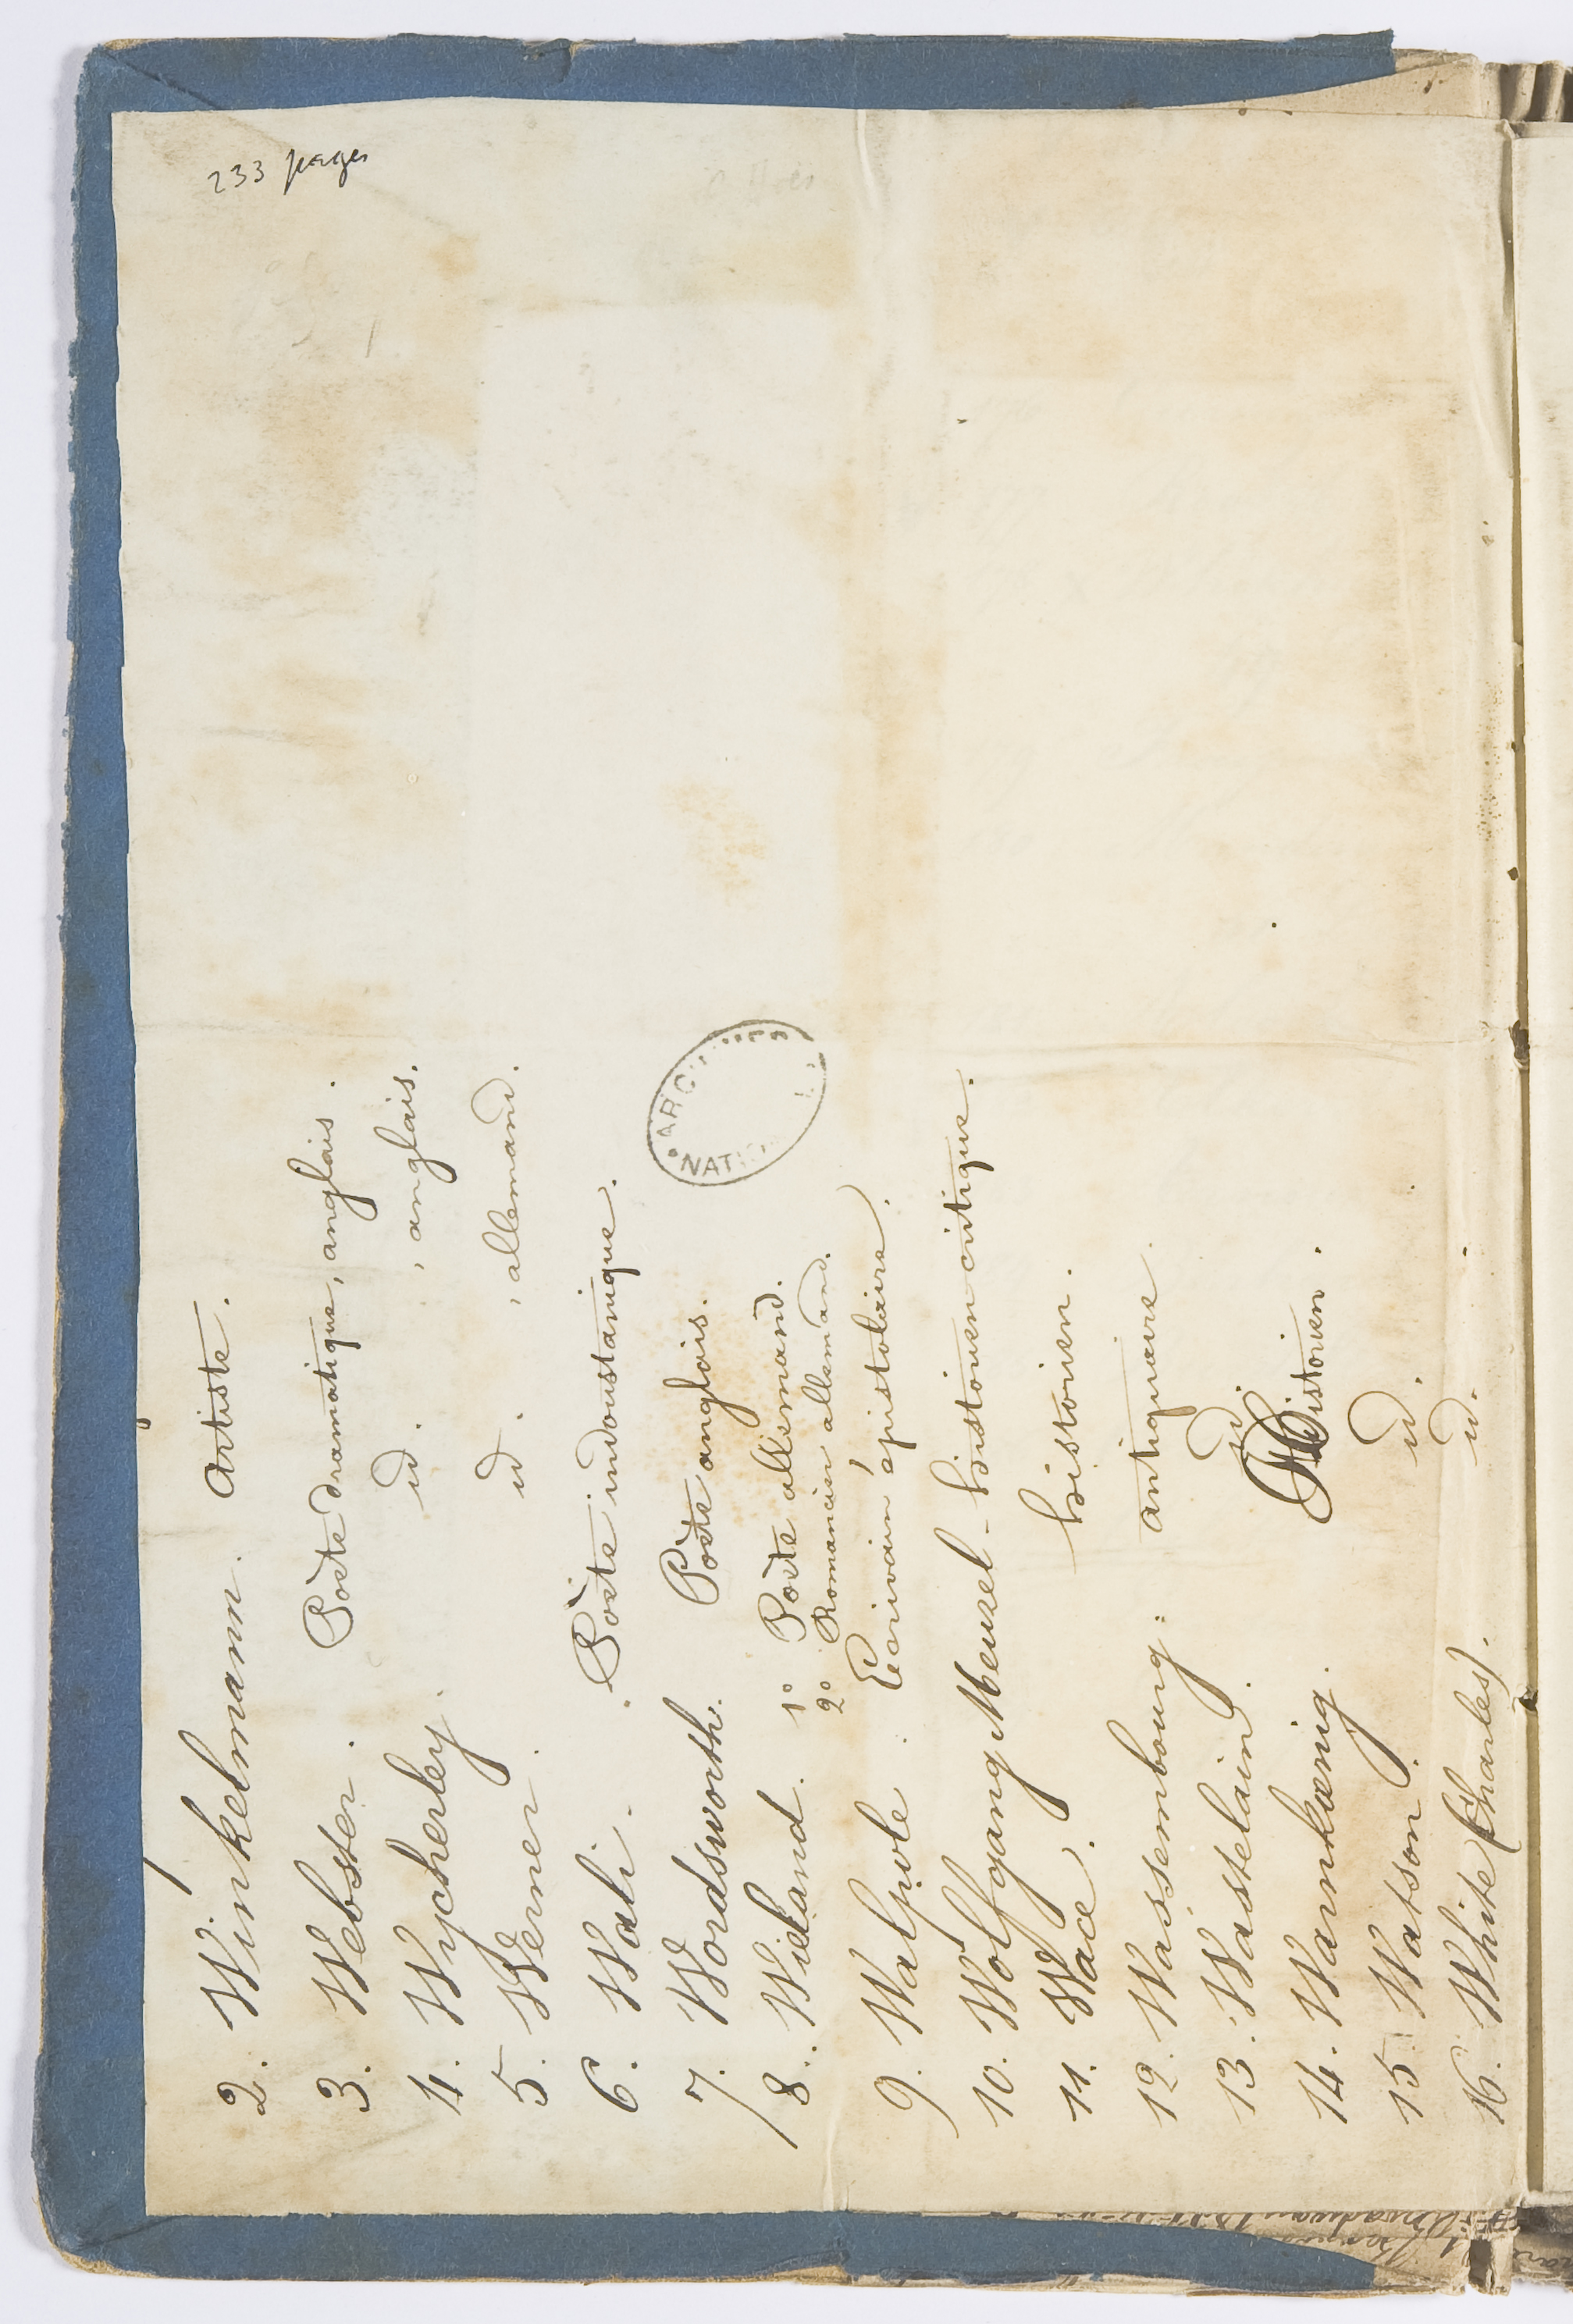 233 pages
2. Winkelmann. Artiste.
3. Webster. Poëte dramatique, anglais.
4. Wycherley. id. , anglais.
5. Werner. id. , allemand.
6. Wali. Poëte indoustanique.
7. Wordsworth. Poëte anglais.
8. Wieland. 1° Poëte allemand.
2° Romancier allemand.
9. Walpole. Ecrivain épistolaire.
10. Wolfgang Menzel - historien critique.
11. Wace. historien.
12. Wassembourg. antiquaire.
13. Wastelain. id.
14. Warnkœnig. Historien.
15. Watson. id.
16. White (Charles). id.
NAT